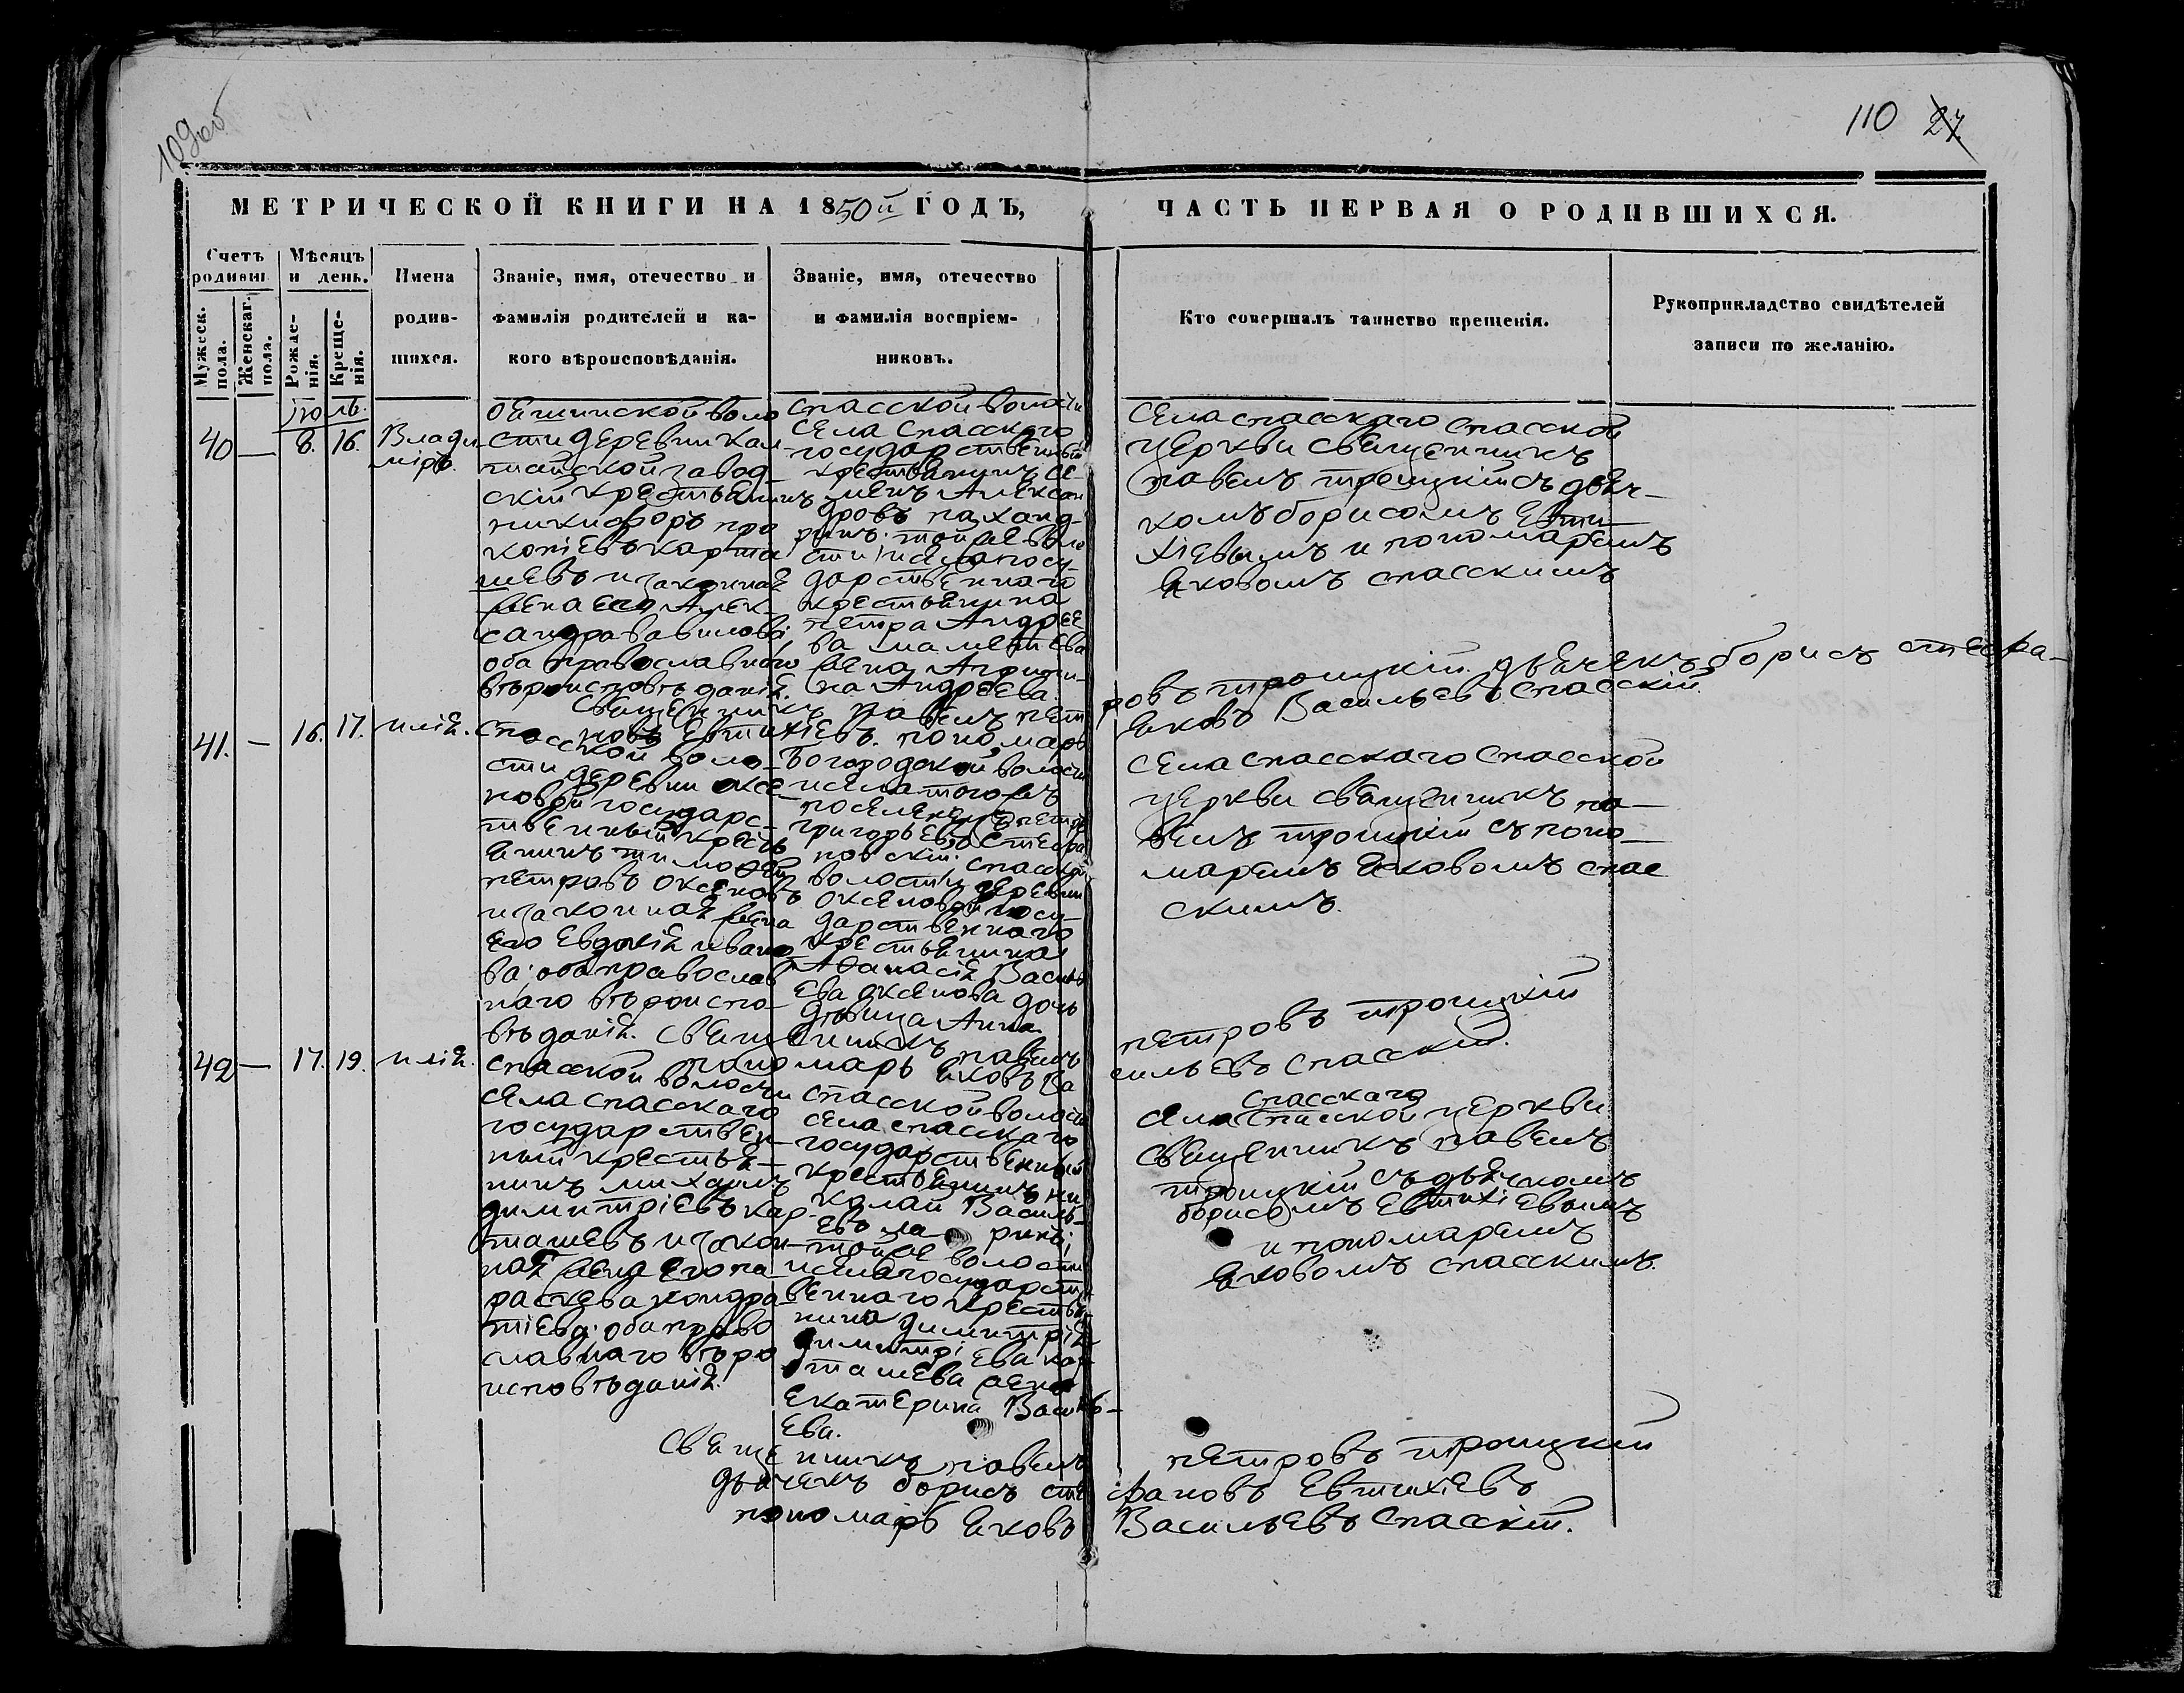 109об
110 27
МЕТРИЧЕСКОЙ КНИГИ НА 1850й ГОДЪ,
ЧАСТЬ ПЕРВАЯ О РОДИВШИХСЯ.
Счетъ родивш.
Мужеск. пола.
Женскаг. пола.
Мѣсяцъ и день.
Рожденія.
Крещенія.
Имена
родив-
шихся.
Званіе, имя, отечество и
фамилія родителей и ка-
кого вѣроисповѣданія.
Званіе, имя, отечество
и фамилія воспріем-
никовъ.
Кто совершалъ таинство крещенія.
Рукоприкладство свидѣтелей
записи по желанію.
Іюль.
40 — 8. 16.
Влади
міръ.
волo
сти деревни Кал
тайской завод
скій крестьянинъ
никифоръ про
копіевъ карта
шевъ и законная
жена его Алек-
сандра вавилова;
оба православнаго
вѣроисповѣданія.
спасской волости
села спасскаго
государственный
крестьянинъ се-
менъ Алексан
дровъ
той же воло
сти и села госу-
дарственнаго
крестьянина
петра Андрее
ва
жена Агрипи-
на Андреева.
села спасскаго спасской
церкви священникъ
павелъ троицкій съ дьяч-
комъ борисомъ Евти-
хіевымъ и пономаремъ
яковомъ спасскимъ
Священникъ павелъ пет
ровъ троицкій. дьячекъ борисъ стефа-
новъ Евтихіевъ. пономарь
яковъ Васильевъ спасскій.
41. — 16. 17. илія.
спасской воло-
сти деревни оксе
новой государс-
твенный кресть
янинъ тимофей
петровъ оксеновъ
и законная жена
его Евдокія ивано
ва; оба православ
наго вѣроиспо-
вѣданія.
Богородской волости
и села того жъ
поселенецъ петръ
григорьевъ стефа
новскій. спасской
волости деревни
оксеновой госу-
дарственнаго
крестьянина
Афанасія Василь
ева оксенова дочь
дѣвица Анна
села спасскаго спасской
церкви священникъ па-
велъ троицкій съ поно-
маремъ яковомъ спас
скимъ.
Священникъ павелъ
петровъ троицкій
пономарь яковъ Ва
сильевъ спасскій.
42 — 17. 19. илія.
спасской волости
села спасскаго
государствен-
ный крестья-
нинъ михаилъ
димитріевъ кар
ташевъ и закон-
ная жена его па-
раскева кондра-
тіева; оба право
славнаго вѣро
исповѣданія.
спасской волости
села спасскаго
государственный
крестьянинъ ни
колай Василь-
евъ
той же волости
и села государст
веннаго крестья-
нина димитрія
димитріева кар-
ташева жена
Екатерина Василь-
ева.
спасскаго
села спасской церкви
священникъ павелъ
троицкій съ дьячкомъ
борисомъ Евтихіевымъ
и пономаремъ
яковомъ спасскимъ.
Священникъ павелъ
петровъ троицкій
дьячекъ борисъ сте
фановъ Евтихіевъ
пономарь яковъ
Васильевъ спасскій.